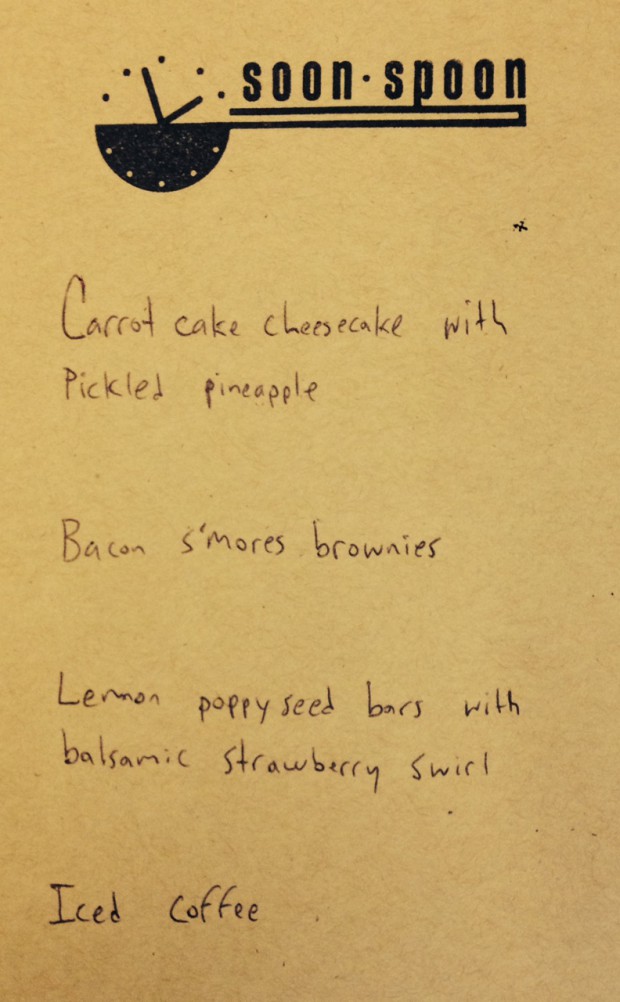 soon·spoon
Carrot cake cheesecake with
Pickled pineapple
Bacon s'mores brownies
Lemon poppyseed bars with
balsamic strawberry swirl
Iced coffee